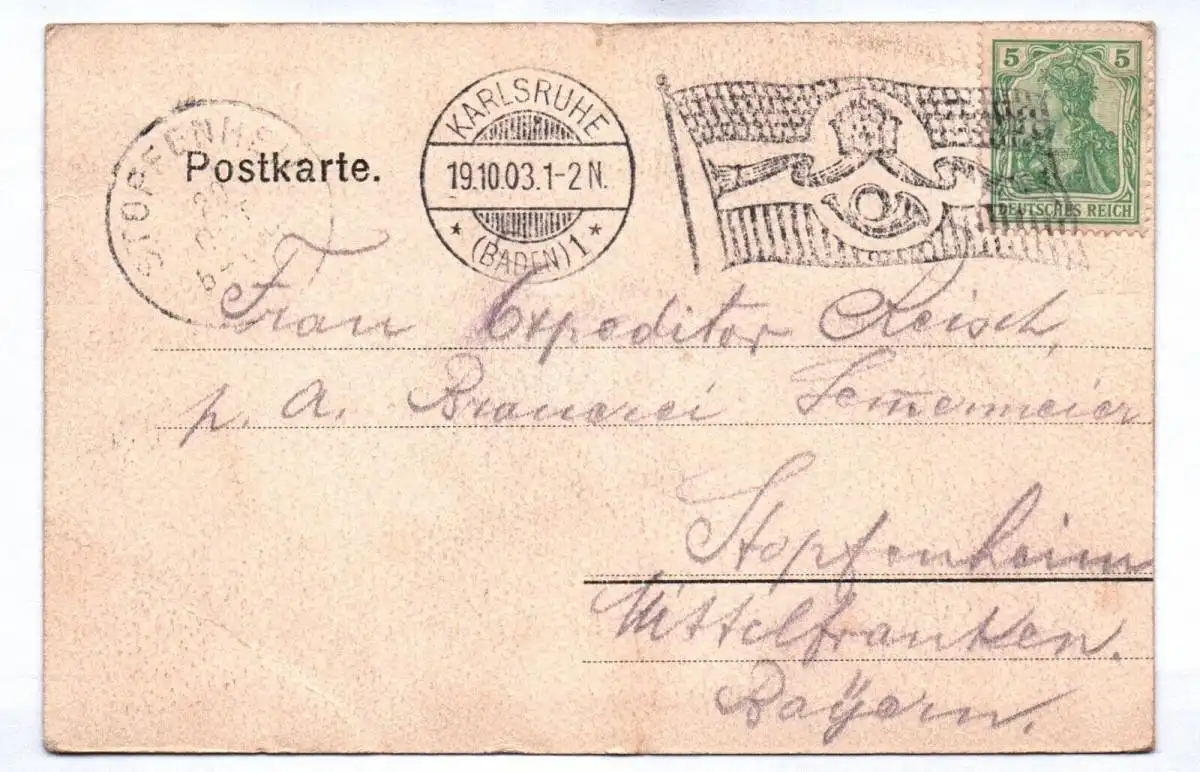 5 5
DEUTSCHES REICH
KARLSRUHE
19.10.03.1-2 N.
* (BADEN) 1 *
STOPFENHEI
20
OCT
Postkarte.
Frau Expeditor Reisch,
p. A. Brauerei
Stopfenheim
Mittelfranken.
Bayern.